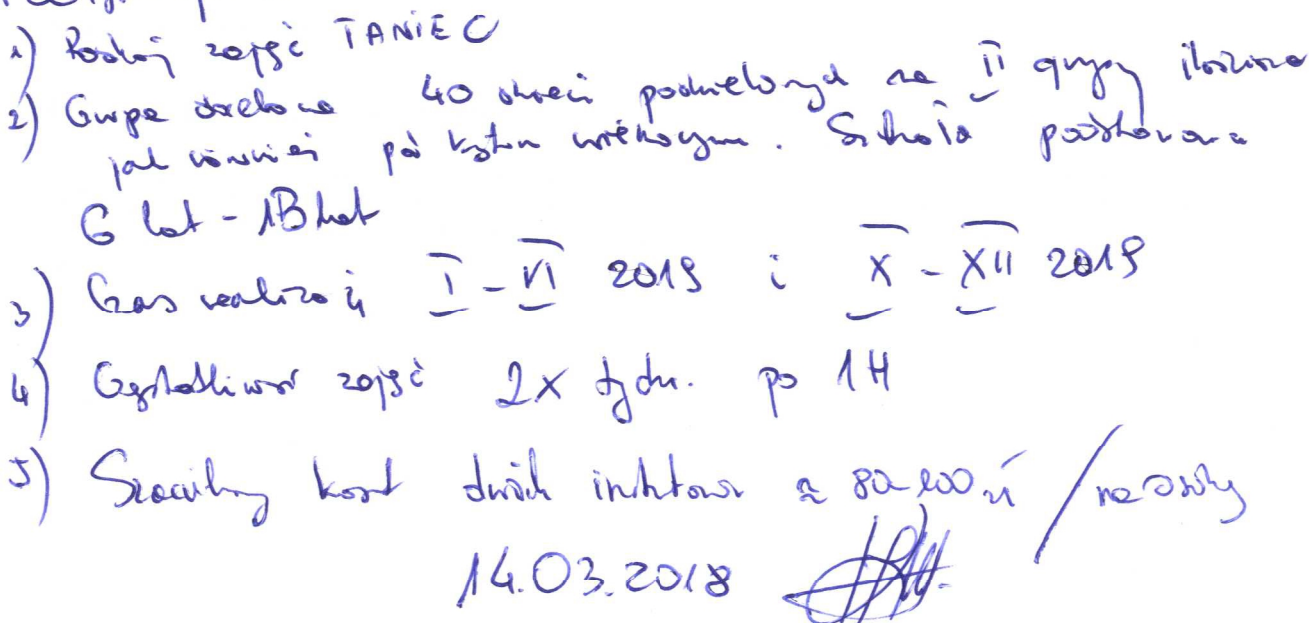 1) Rodzaj zajęć TANIEC
2) Grupa docelowa 40 dzieci podzielonych na II grupy ilościowo
jak również pod kątem wiekowym. Szkoła podstawowa
6 lat - 13 lat
3) Czas realizacji I - VI 2019 i X - XII 2019
4) Częstotliwość zajęć 2x tydn. po 1H
5) Szacunkowy koszt dwóch instruktorów 80-100 zł / na osobę
14.03.2018